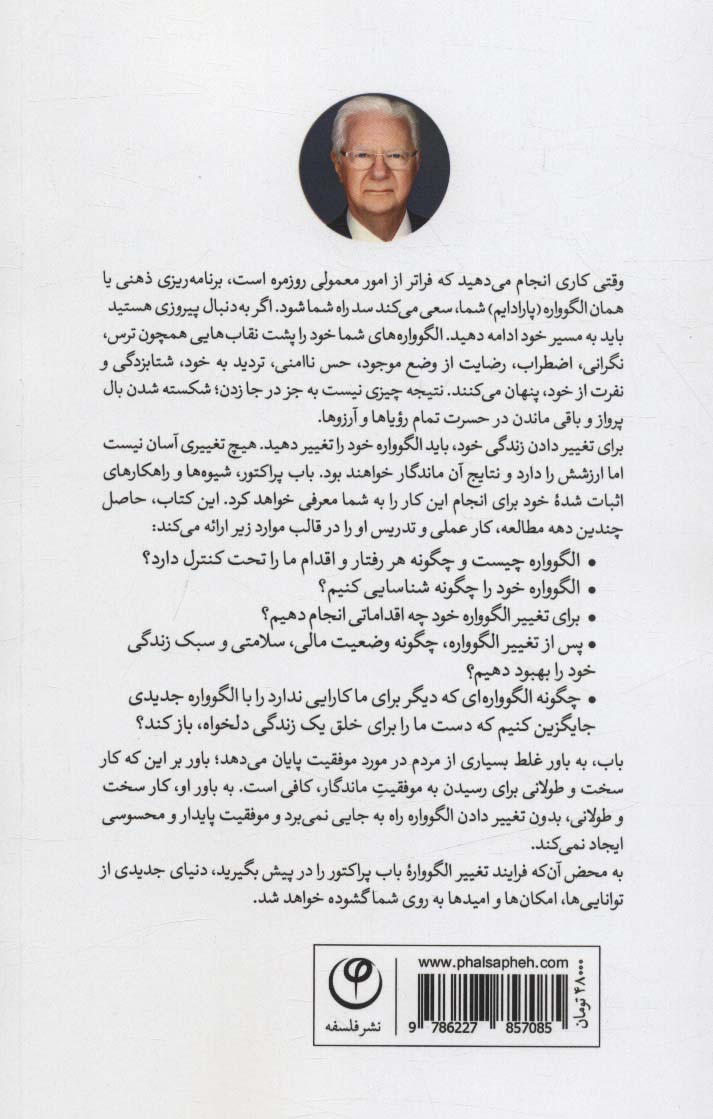 وقتی کاری انجام می‌دهید که فراتر از امور معمولی روزمره است، برنامه‌ریزی ذهنی یا
همان الگوواره (پارادایم) شما، سعی می‌کند سد راه شما شود. اگر به‌دنبال پیروزی هستید
باید به مسیر خود ادامه دهید. الگوواره‌های شما خود را پشت نقاب‌هایی همچون ترس،
نگرانی، اضطراب، رضایت از وضع موجود، حس ناامنی، تردید به خود، شتابزدگی و
نفرت از خود، پنهان می‌کنند. نتیجه چیزی نیست به جز در جا زدن؛ شکسته شدن بال
پرواز و باقی ماندن در حسرت تمام رؤیاها و آرزوها.
برای تغییر دادن زندگی خود، باید الگوواره خود را تغییر دهید. هیچ تغییری آسان نیست
اما ارزشش را دارد و نتایج آن ماندگار خواهند بود. باب پراکتور، شیوه‌ها و راهکارهای
اثبات شدهٔ خود برای انجام این کار را به شما معرفی خواهد کرد. این کتاب، حاصل
چندین دهه مطالعه، کار عملی و تدریس او را در قالب موارد زیر ارائه می‌کند:
• الگوواره چیست و چگونه هر رفتار و اقدام ما را تحت کنترل دارد؟
• الگوواره خود را چگونه شناسایی کنیم؟
• برای تغییر الگوواره خود چه اقداماتی انجام دهیم؟
• پس از تغییر الگوواره، چگونه وضعیت مالی، سلامتی و سبک زندگی
خود را بهبود دهیم؟
• چگونه الگوواره‌ای که دیگر برای ما کارایی ندارد را با الگوواره جدیدی
جایگزین کنیم که دست ما را برای خلق یک زندگی دلخواه، باز کند؟
باب، به باور غلط بسیاری از مردم در مورد موفقیت پایان می‌دهد؛ باور بر این که کار
سخت و طولانی برای رسیدن به موفقیتِ ماندگار، کافی است. به باور او، کار سخت
و طولانی، بدون تغییر دادن الگوواره راه به جایی نمی‌برد و موفقیت پایدار و محسوسی
ایجاد نمی‌کند.
به محض آن‌که فرایند تغییر الگووارهٔ باب پراکتور را در پیش بگیرید، دنیای جدیدی از
توانایی‌ها، امکان‌ها و امیدها به روی شما گشوده خواهد شد.
www.phalsapheh.com
۴۸۰۰۰ تومان
9 786227 857085
نشر فلسفه